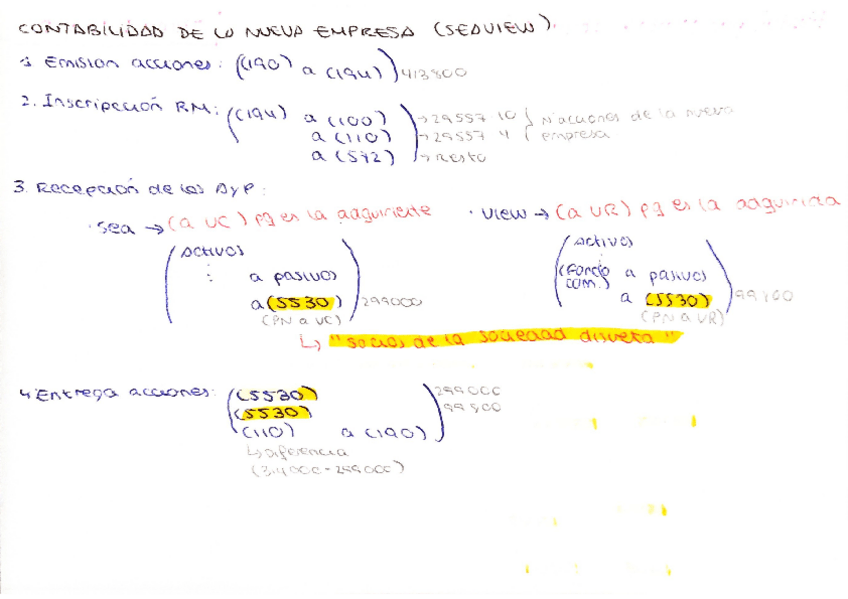 CONTABILIDAD DE LA NUEVA EMPRESA (SEAVIEW).
1. Emisión acciones: (190) a (194) 413800
2. Inscripción RM: (194) a (100) → 29557·10 Nº acciones de la nueva
a (110) → 29557·4 empresa
a (572) → resto
3. Recepción de los A y P:
· Sea → (a VC) pq es la adquirente · View → (a VR) pq es la adquirida
Activos Activos
⋮ a pasivos (Fondo a pasivos
com.)
a (5530) 299000 a (5530)
(PN a VC) (PN a VR)
↳ "socios de la sociedad disuelta"
4. Entrega acciones: (5530) 299000
(5530)
(110) a (190)
↳ Diferencia